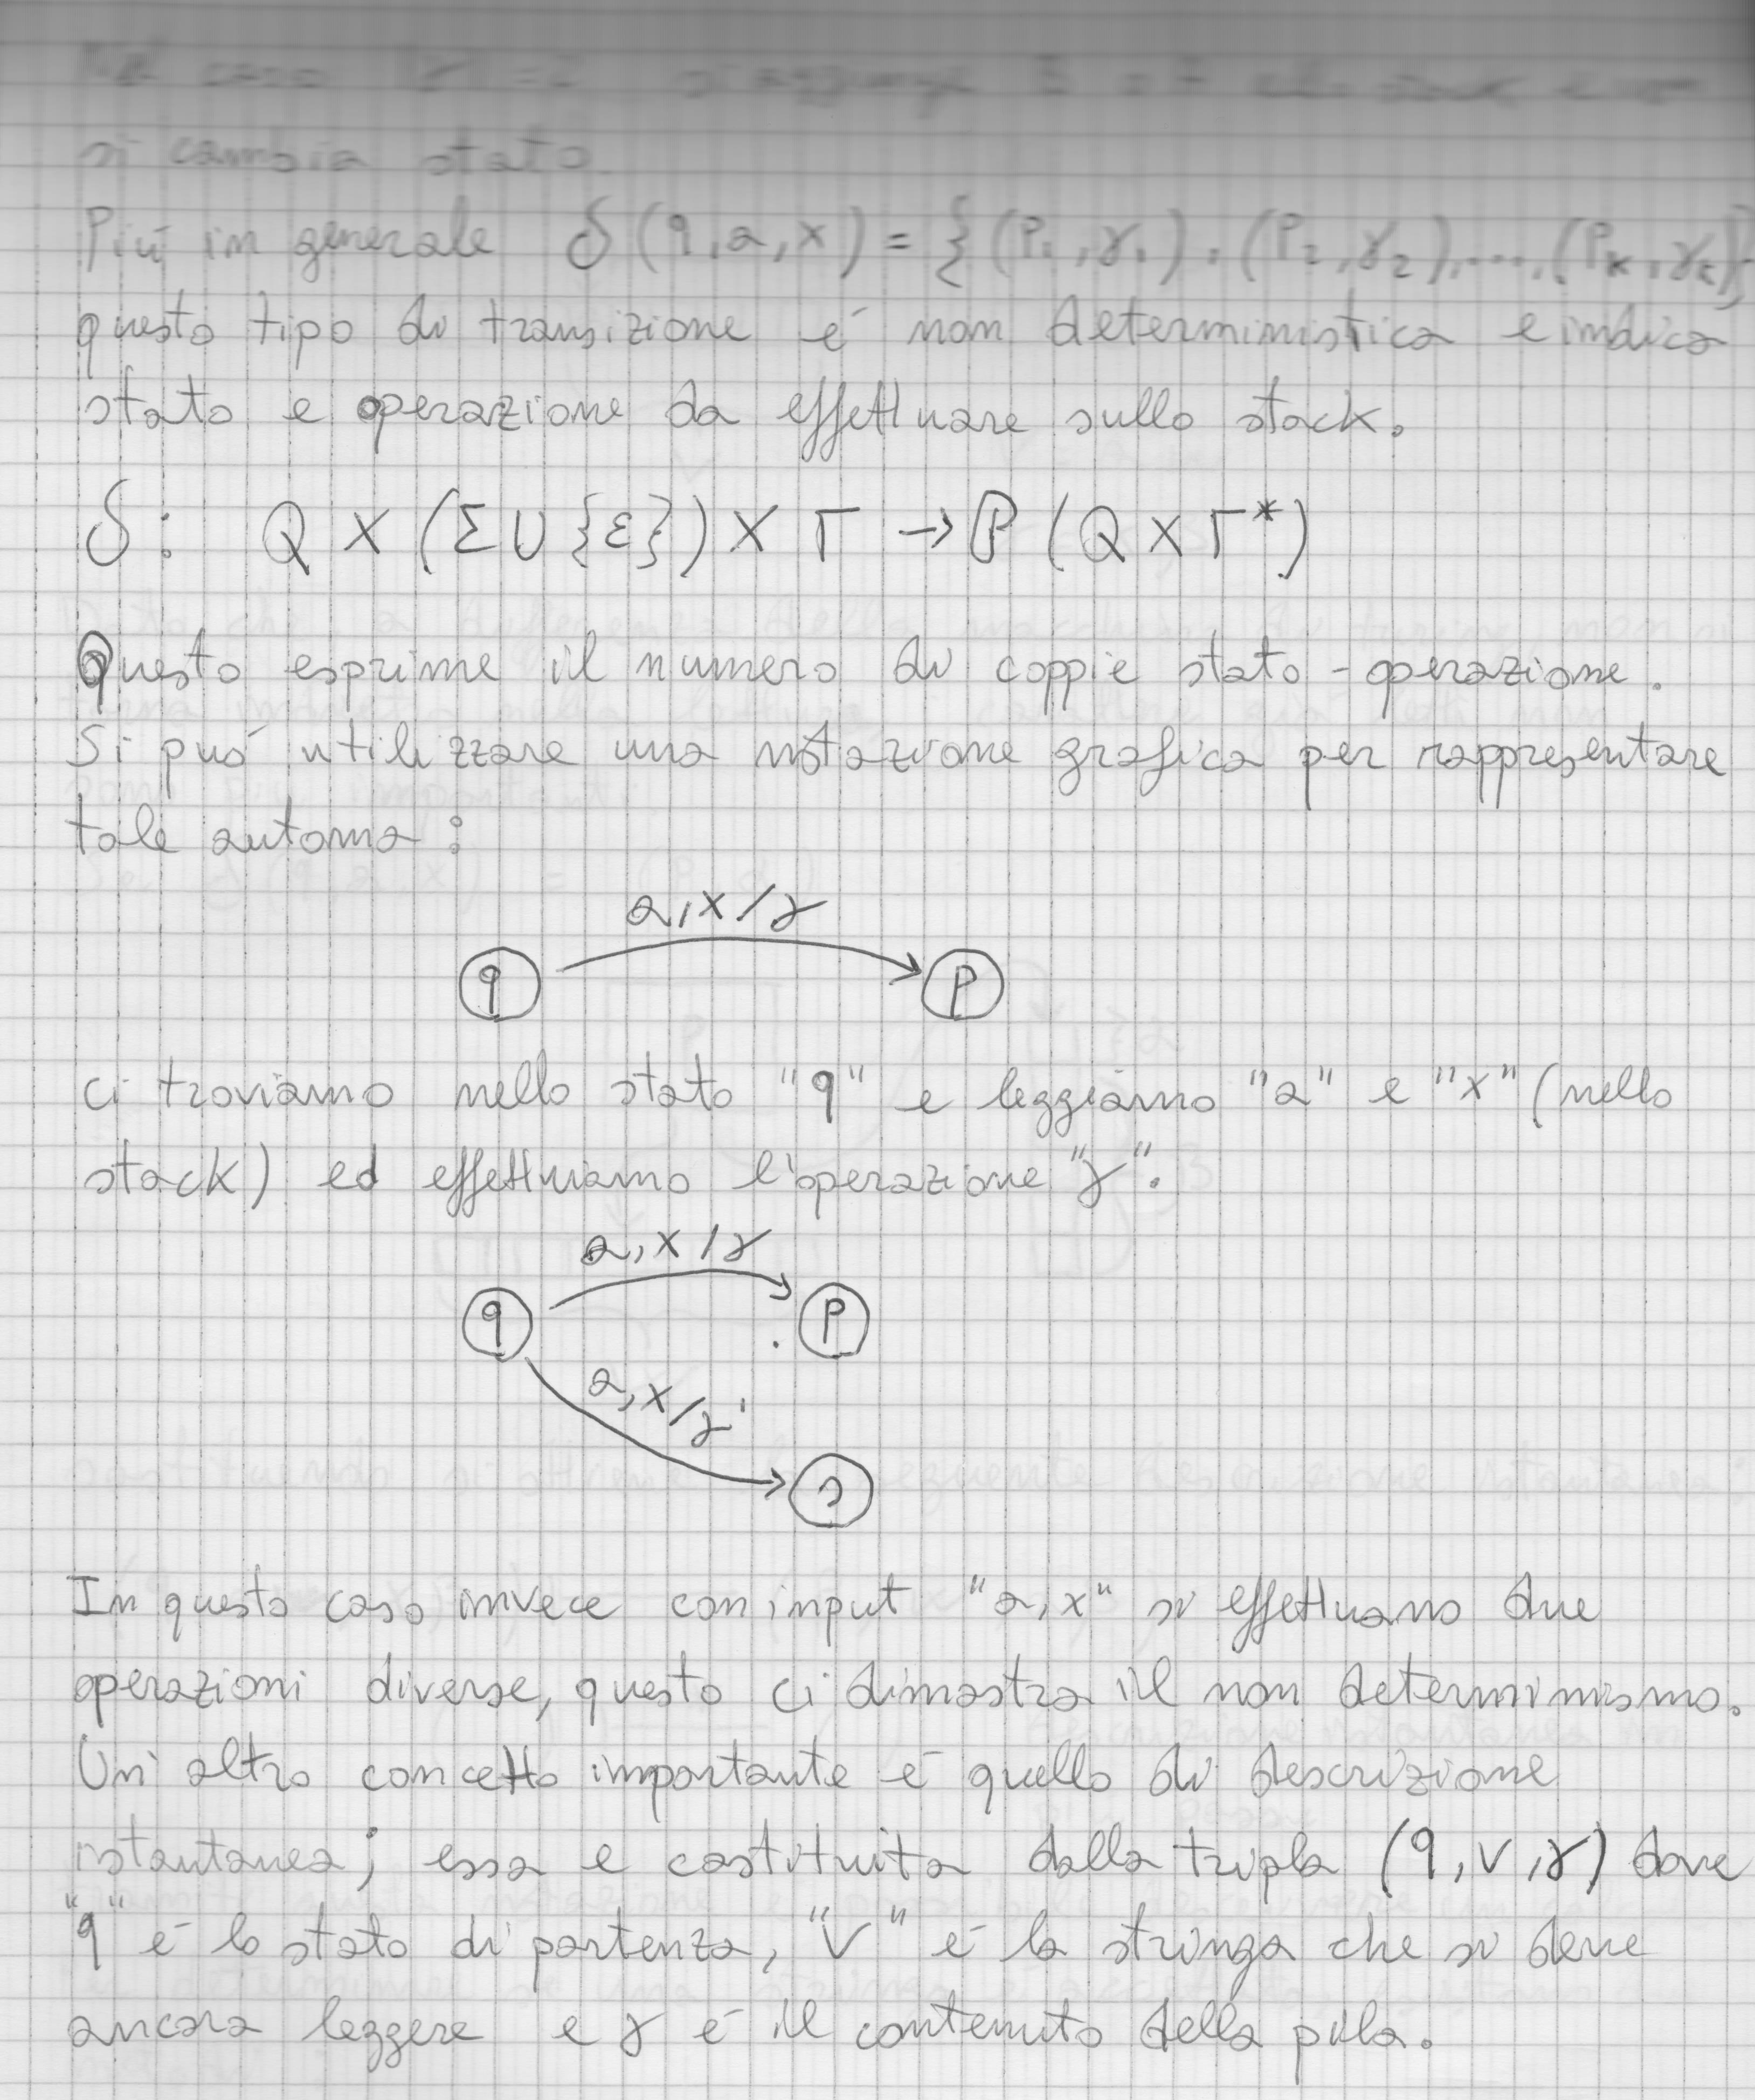 caso si aggiunge
si cambia stato.
Piú in generale δ(q,a,x) = {(P₁,γ₁),(P₂,γ₂),...,(Pₖ,γₖ)}
questo tipo di transizione é non deterministica e indica
stato e operazione da effettuare sullo stack.
δ: Q X (Σ U {ε}) X Γ → P (Q X Γ*)
Questo esprime il numero di coppie stato - operazione.
Si puó utilizzare una notazione grafica per rappresentare
tale automa:
a,x/γ
q P
ci troviamo nello stato "q" e leggiamo "a" e "x" (nello
stack) ed effettuiamo l'operazione "γ".
a,x/γ
q P
a,x/γ'
s
In questo caso invece con input "a,x" si effettuano due
operazioni diverse, questo ci dimostra il non determinismo.
Un altro concetto importante é quello di descrizione
istantanea; essa e costituita dalla tripla (q,v,γ) dove
"q" é lo stato di partenza, "V" é la stringa che si deve
ancora leggere e γ é il contenuto della pila.